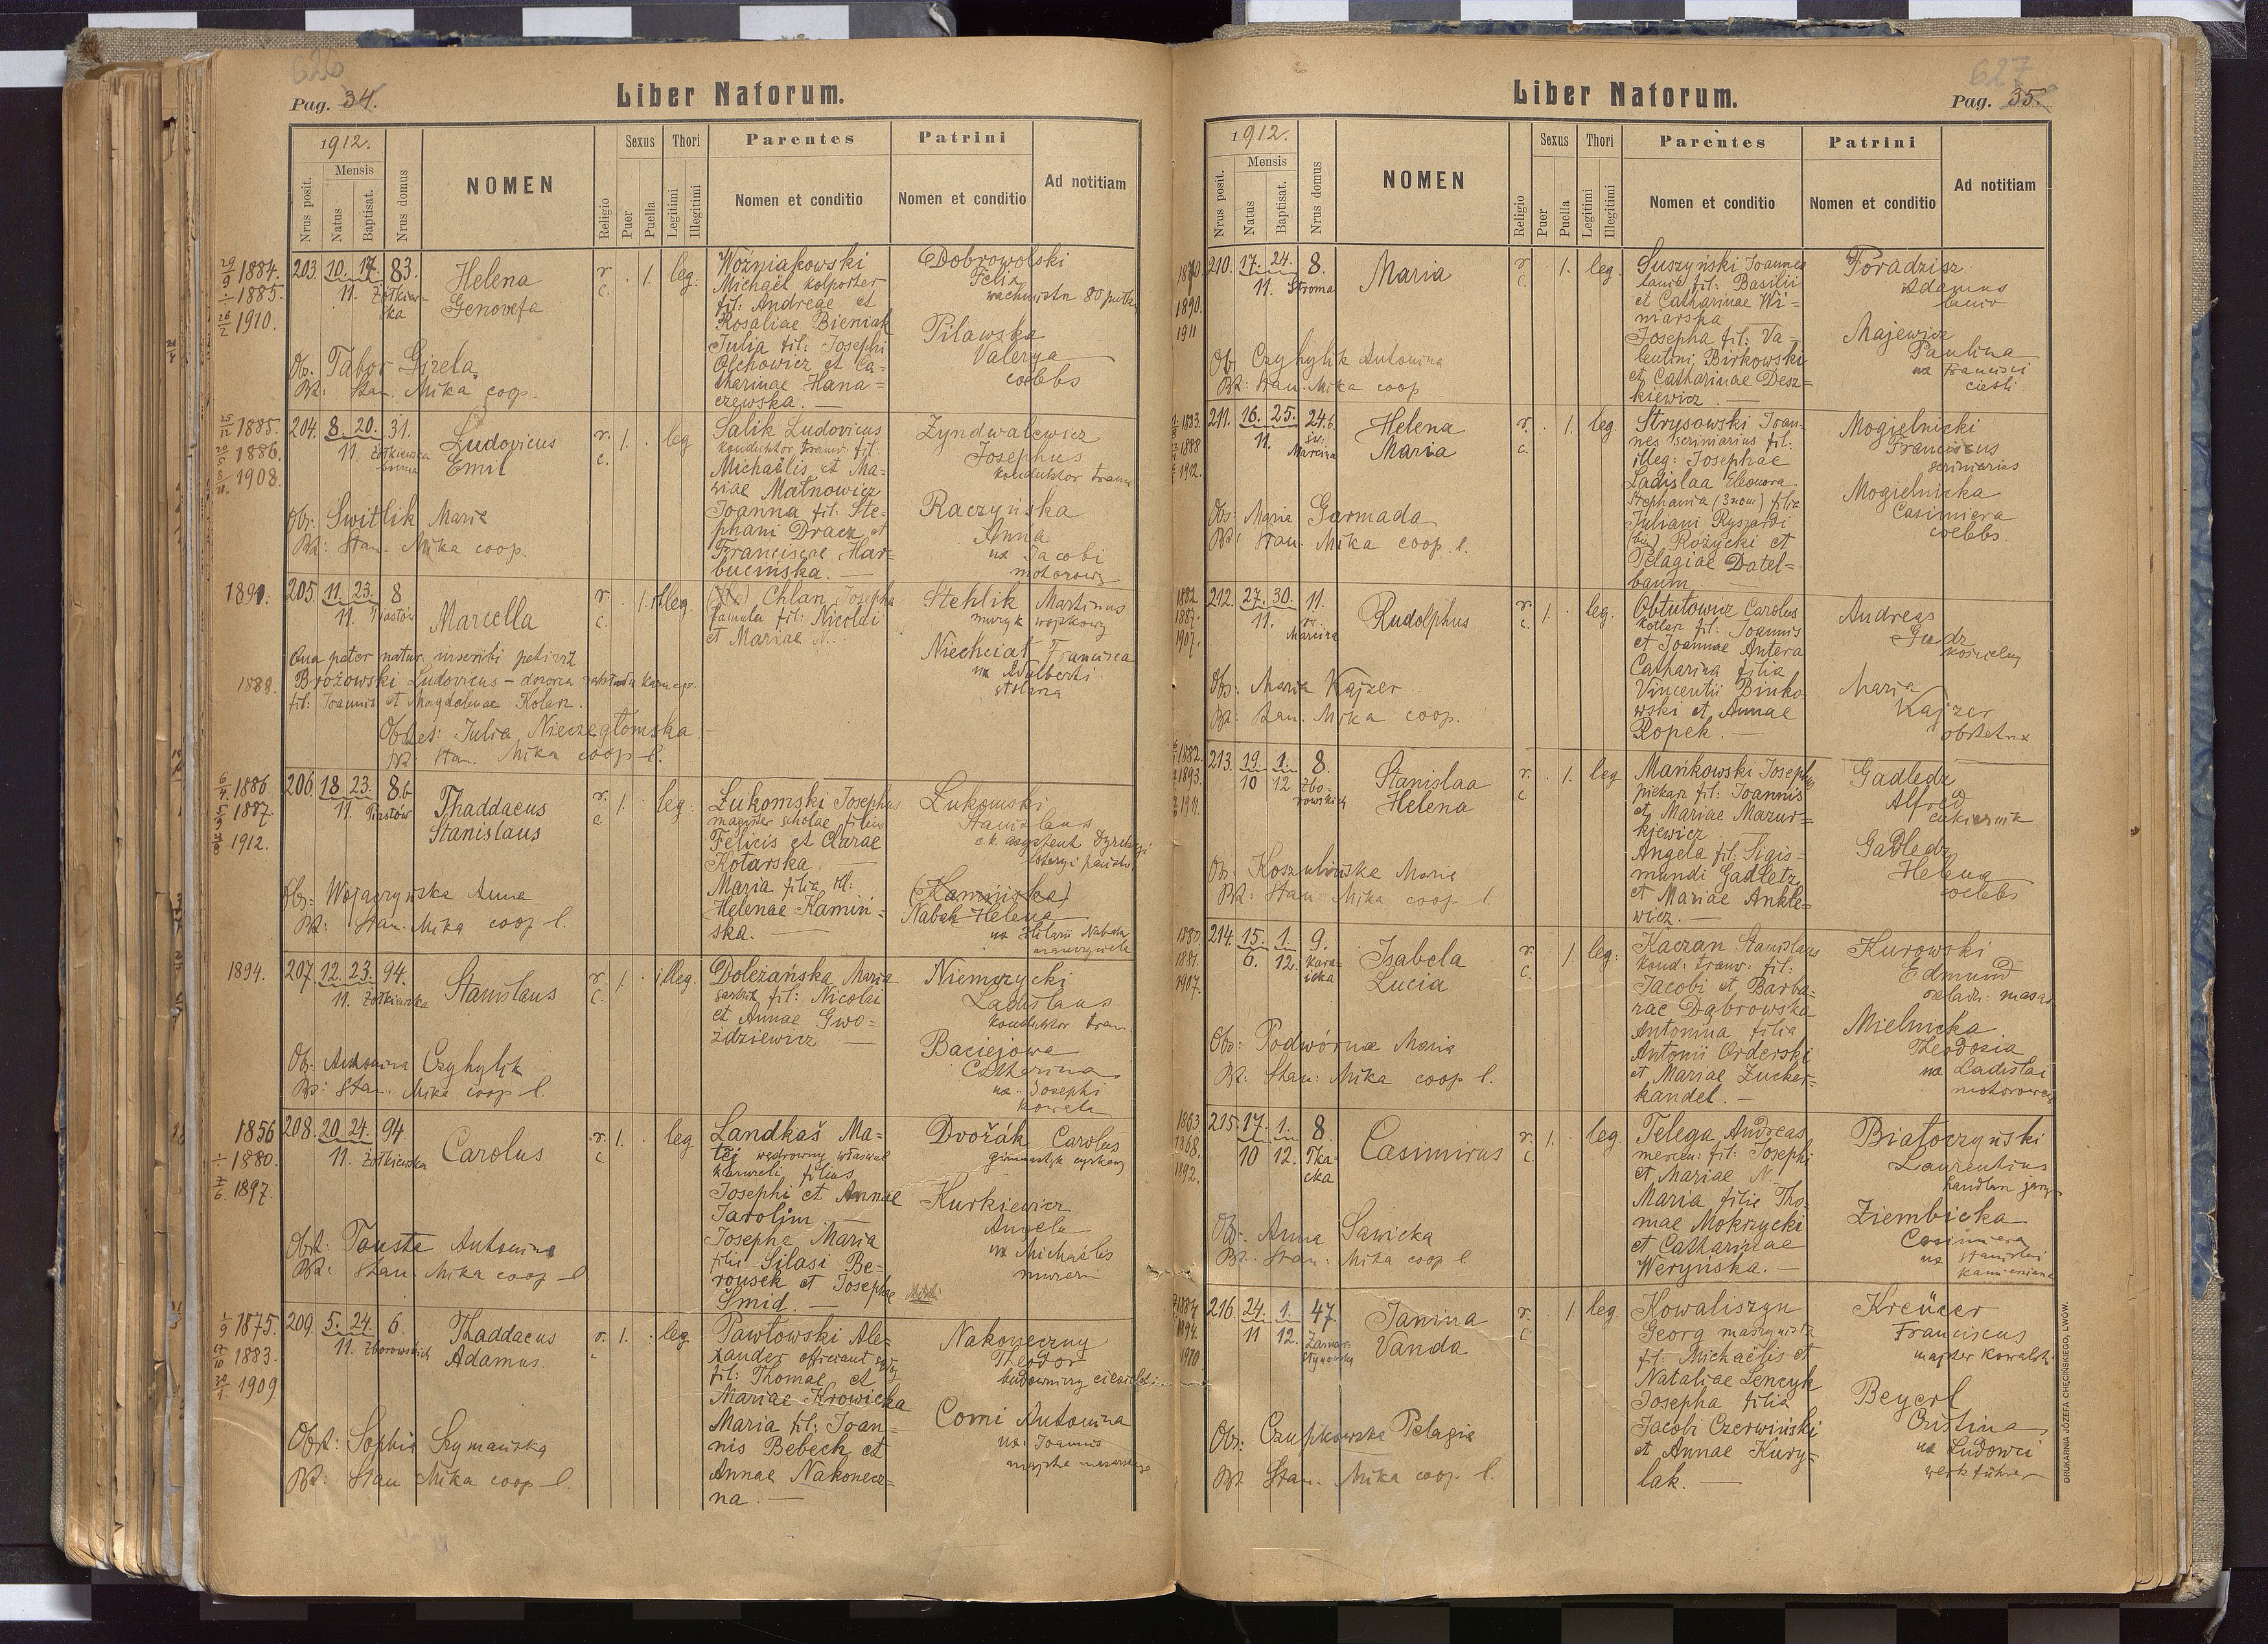 626
Pag. 34.
Liber Natorum.
1912.
Nrus posit.
Mensis
Natus
Baptisat.
Nrus domus
NOMEN
Religio
Sexus
Puer
Puella
Thori
Legitimi
Illegitimi
Parentes
Nomen et conditio
Patrini
Nomen et conditio
Ad notitiam
29/9 1884.
1885.
26/2 1910.
203. 10. 17. 83.
11. Żółkiewska
Helena
Genovefa
r. c. 1. leg.
Woźniakowski
Michaël kolporter
fil: Andreae et
Rosaliae Bieniak
Julia fil: Josephi
Olchowicz et Ca-
tharinae Hana=
czewska. —
Dobrowolski
Felix
wachmistr 80 pułku
Pilawska
Valerya
coelebs
Ob. Tabor Gizela
Bt: Stan. Mika coop.
25/12 1885.
1886.
1908.
204. 8. 20. 31.
11. Żółkiewska
Ludovicus
Emil
r. c. 1. leg
Salik Ludovicus
konduktor tramw. fil:
Michaëlis et Ma-
riae Matnowicz
Joanna fil: Ste-
phani Dracz et
Franciscae Har-
bucińska. —
Zyndwalewicz
Josephus
konduktor tramw
Raczyńska
Anna
ux Jacobi
motorow.
Obs: Switlik Maria
Bt: Stan. Mika coop.
1891.
205. 11. 23. 8
11. Piastów
Marcella
r. c. 1. illeg.
Chlan Josepha
famula fil: Nicolai
et Mariae N.
Stehlik Martinus
muzyk wojskowy
Niechciał Francisca
ux Adalberti
stolarza
Qua pater natur. inscribi petivit
1888. Brożowski Ludovicus – dozorca zakładu karnego.
fil: Joannis et Magdalenae Kolarz.
Obstet: Julia Niezegłomska
Bt: Stan. Mika coop l.
6/4 1886
5/9 1887.
1912.
206. 18. 23. 8b
11. Piastów
Thaddaeus
Stanislaus
r. c. 1. leg.
Łukomski Josephus
magister scholae filius
Felicis et Clarae
Kotarska. —
Maria filia
Helenae Kamiń=
ska. —
Łukomski
Stanislaus
c.k. asystent Dyrekcyi
loteryi państw
(Kamińska)
Nabak Helena
ux Hilarii Nabaka
nauczyciela
Obs: Wojaczyńska Anna
Bt: Stan. Mika coop l.
1894.
207. 12. 23. 94.
11. Żółkiewska
Stanislaus
r. c. 1. illeg.
Doleżańska Maria
fil: Nicolai
et Annae Gwo=
ździewicz —
Niemczycki
Ladislaus
konduktor tram.
Baciejowa
Catharina
ux Josephi
kowala
Ob: Antonina Czyhylyk
Bt: Stan. Mika coop l.
1856
1880.
7/6 1897.
208. 20. 24. 94.
11. Żółkiewska
Carolus
r. c. 1. leg
Landkaš Ma-
těj wędrowny właściciel
karuzeli filius
Josephi et Annae
Jarolím. —
Josepha Maria
filia Silasi Be-
rousek et Josephae
Šmid. —
Dvořák Carolus
gimnastyk cyrkowy
Kurkiewicz
Angela
ux Michaëlis
murarza
Obst: Tauste Antonina
Bt: Stan. Mika coop l.
1/9 1875.
17/10 1883.
30/1 1909
209. 5. 24. 6.
11. Zborowskich
Thaddaeus
Adamus.
r. c. 1. leg
Pawłowski Ale-
xander officiant
fil: Thomae et
Mariae Krowicka
Maria fil: Joan-
nis Bebech et
Annae Nakonecz-
na. —
Nakoneczny
Theodor
budowniczy
Comi Antonina
ux: Joannis
Obst: Sophia Szymańska
Bt: Stan Mika coop l.
627
Pag. 35.
Liber Natorum.
1912.
Nrus posit.
Mensis
Natus
Baptisat.
Nrus domus
NOMEN
Religio
Sexus
Puer
Puella
Thori
Legitimi
Illegitimi
Parentes
Nomen et conditio
Patrini
Nomen et conditio
Ad notitiam
1890.
1911
210. 17. 24. 8.
11. Stroma
Maria
r. c. 1. leg.
Suszyński Joannes
lanio fil: Basilii
et Catharinae Wi=
niarska
Josepha fil: Va-
lentini Birkowski
et Catharinae Desz-
kiewicz. —
Poradzisz
Adamus
lanio
Majewicz
Paulina
ux Francisci
cieśli
Ob: Czyhylik Antonina
Bt: Stan. Mika coop
1883.
1888
1912.
211. 16. 25. 24.b.
11. św. Marcina
Helena
Maria
r. c. 1. leg.
Strysowski Joan-
nes scriniarius fil.
illeg: Josephae
Ladislaa Eleonora
Stephania (3 nom) filia
Juliani Ryszardi
(bin) Rożycki et
Pelagiae Datel-
baum
Mogielnicki
Franciscus
scriniarius
Mogielnicka
Casimiera
coelebs.
Obs: Maria Garmada
Bt: Stan. Mika coop. l.
1882.
1887.
1907.
212. 27. 30. 11.
11. św. Marcina
Rudolphus
r. c. 1. leg.
Obtułowicz Carolus
kotlarz fil: Joannis
et Joannae Antera
Catharina filia
Vincentii Binko-
wski et Annae
Ropek. —
Andreas
Gudz
kościelny
Maria
Kajzer
obstetrix
Obs: Maria Kajzer
Bt: Stan. Mika coop.
1882.
1893.
1911.
213. 19. 1. 8.
10 12 Zborowskich
Stanislaa
Helena
r. c. 1. leg
Mańkowski Josephus
piekarz fil: Joannis
et Mariae Mazur=
kiewicz
Angela fil: Sigis=
mundi Gadletz
et Mariae Ankle=
wicz. —
Gadledz
Alfred
cukiernik
Gadledz
Helena
coelebs
Ob: Koszulińska Maria
Bt: Stan. Mika coop l.
1880.
1881.
1907.
214. 15. 1. 9.
6. 12.
Isabela
Lucia
r. c. 1. leg.
Kaczan Stanislaus
kond: tramw: fil:
Jacobi et Barba=
rae Dąbrowska
Antonina filia
Antonii Orderski
et Mariae Zucker-
kandel. —
Kurowski
Edmund
Mielnicka
Theodosia
ux Ladislai
motorowego
Obs: Podwórna Maria
Bt: Stan: Mika coop l.
1863.
1868.
1892.
215. 17. 1. 8.
10 12. Tkacka
Casimirus
r. c. 1. leg.
Telega Andreas
mercen: fil: Josephi
et Mariae N.
Maria filia Tho-
mae Mokrzycki
et Catharinae
Weryńska. —
Białoczyński
Laurentius
handlarz
Ziembicka
Casimiera
ux Stanislai
kamieniarza
Ob: Anna Sawicka
Bt: Stan: Mika coop l.
1884.
216. 24. 1. 47.
11 12. Zamarstynowska
Janina
Vanda
r. c. 1. leg
Kowaliszyn
Georg maszynista
fil: Michaëlis et
Nataliae Lenczyk
Josepha filia
Jacobi Czerwiński
et Annae Kury-
lak. —
Kreücer
Franciscus
majster kowalski
Beyerl
Cristina
ux Ludovici
werkführer
Ob: Czupkowska Pelagia
Bt Stan. Mika coop. l.
DRUKARNIA JÓZEFA CHĘCIŃSKIEGO, LWÓW.